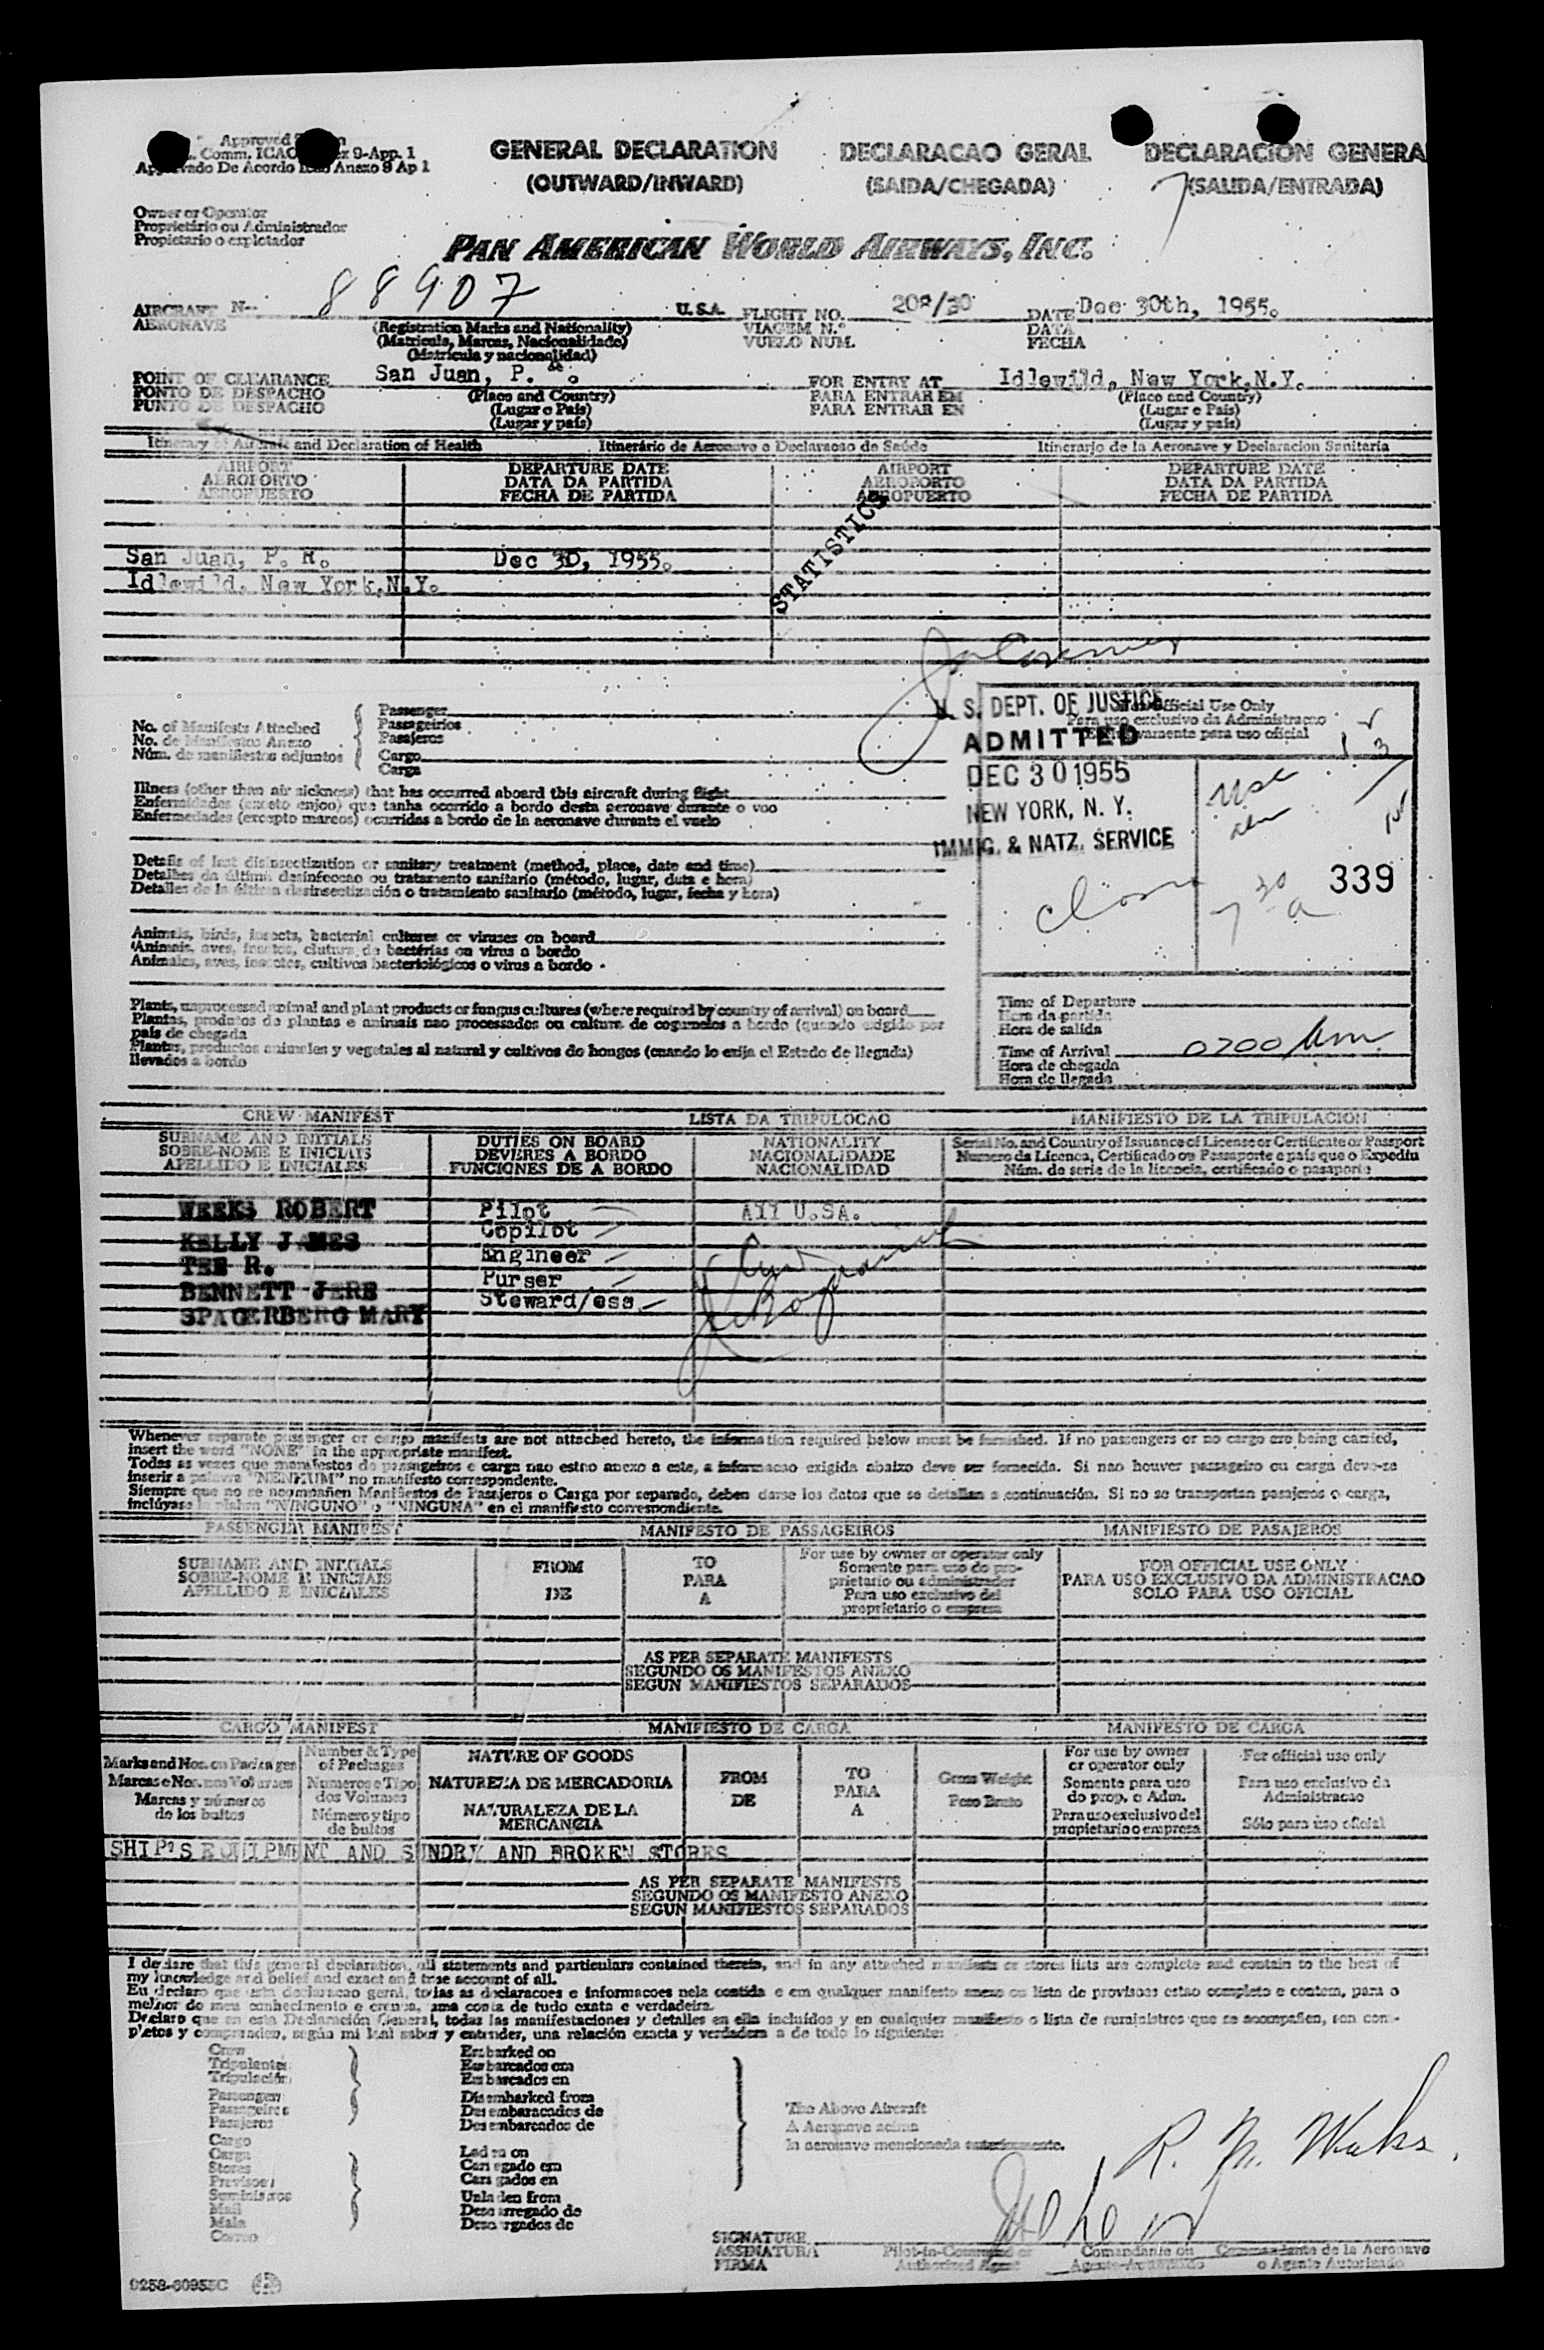 Approved
Comm. ICAO 9-App. 1
De Acordo Anexo 9 Ap 1
GENERAL DECLARATION
(OUTWARD/INWARD)
DECLARACAO GERAL
(SAIDA/CHEGADA)
DECLARACION GENERA
(SALIDA/ENTRADA)
Owner or Operator
Proprietário ou Administrador
Propietario o explotador
PAN AMERICAN WORLD AIRWAYS, INC.
AIRCRAFT N-- 88907 U.S.A. FLIGHT NO. 208/30 DATE Dec 30th, 1955.
AERONAVE VIAGEM N.º DATA
VUELO NUM. FECHA
(Registration Marks and Nationality)
(Matricula, Marcas, Nacionalidade)
(Matricula y nacionalidad)
POINT OF CLEARANCE San Juan, P. FOR ENTRY AT Idlewild, New York, N.Y.
PONTO DE DESPACHO (Place and Country) PARA ENTRAR EM (Place and Country)
PUNTO DE DESPACHO (Lugar e País) PARA ENTRAR EN (Lugar e País)
(Lugar y país) (Lugar y país)
Itinerary of Aircraft and Declaration of Health Itinerário de Aeronave e Declaracao de Saúde Itinerario de la Aeronave y Declaracion Sanitaria
AIRPORT DEPARTURE DATE AIRPORT DEPARTURE DATE
AEROPORTO DATA DA PARTIDA AEROPORTO DATA DA PARTIDA
AEROPUERTO FECHA DE PARTIDA AEROPUERTO FECHA DE PARTIDA
STATISTICS
San Juan, P. R. Dec 30, 1955.
Idlewild, New York, N.Y.
No. of Manifests Attached
No. de Manifestos Anexo
Núm. de manifiestos adjuntos
Passenger
Passageirios
Pasajeros
Cargo
Carga
For Official Use Only
Para uso exclusivo da Administracao
Exclusivamente para uso oficial
U. S. DEPT. OF JUSTICE
ADMITTED
DEC 30 1955
NEW YORK, N. Y.
IMMIG. & NATZ. SERVICE
339
Illness (other than air sickness) that has occurred aboard this aircraft during flight
Enfermidades (exceto enjoo) que tanha ocorrido a bordo desta aeronave durante o voo
Enfermedades (excepto mareos) ocurridas a bordo de la aeronave durante el vuelo
Details of last disinsectization or sanitary treatment (method, place, date and time)
Detalhes da última desinfeccao ou tratamento sanitario (método, lugar, data e hora)
Detalles de la última desinsectización o tratamiento sanitario (método, lugar, fecha y hora)
Animals, birds, insects, bacterial cultures or viruses on board
Animais, aves, insetos, clutura de bactérias ou virus a bordo
Animales, aves, insectos, cultivos bacteriológicos o virus a bordo
Plants, unprocessed animal and plant products or fungus cultures (where required by country of arrival) on board
Plantas, produtos de plantas e animais nao processados ou cultura de cogumelos a bordo (quando exigido por
país de chegada
Plantas, productos animales y vegetales al natural y cultivos de hongos (cuando lo exija el Estado de llegada)
llevados a bordo
Time of Departure
Hora da partida
Hora de salida
Time of Arrival 0700 Am
Hora de chegada
Hora de llegada
CREW MANIFEST LISTA DA TRIPULOCAO MANIFIESTO DE LA TRIPULACION
SURNAME AND INITIALS DUTIES ON BOARD NATIONALITY Serial No. and Country of Issuance of License or Certificate or Passport
SOBRE-NOME E INICIAIS DEVERES A BORDO NACIONALIDADE Numero da Licenca, Certificado ou Passaporte e país que o Expediu
APELLIDO E INICIALES FUNCIONES DE A BORDO NACIONALIDAD Núm. de serie de la licencia, certificado o pasaporte
WEEKS ROBERT Pilot All U.SA.
KELLY JAMES Copilot
TEE R. Engineer
BENNETT JERE Purser
SPAGERBERG MARY Steward/ess
Whenever separate passenger or cargo manifests are not attached hereto, the information required below must be furnished. If no passengers or no cargo are being carried,
insert the word "NONE" in the appropriate manifest.
Todas as vezes que manifestos de passageiros e carga nao estao anexo a este, a informacao exigida abaixo deve ser fornecida. Si nao houver passageiro ou carga deve-se
inserir a palavra "NENHUM" no manifesto correspondente.
Siempre que no se acompañen Manifiestos de Pasajeros o Carga por separado, deben darse los datos que se detallan a continuación. Si no se transportan pasajeros o carga,
inclúyase la plabra "NINGUNO" o "NINGUNA" en el manifiesto correspondiente.
PASSENGER MANIFEST MANIFESTO DE PASSAGEIROS MANIFIESTO DE PASAJEROS
SURNAME AND INITIALS
SOBRE-NOME E INICIAIS
APELLIDO E INICIALES
FROM
DE
TO
PARA
A
For use by owner or operator only
Somente para uso do pro-
prietario ou administrador
Para uso exclusivo del
proprietario o empresa
FOR OFFICIAL USE ONLY
PARA USO EXCLUSIVO DA ADMINISTRACAO
SOLO PARA USO OFICIAL
AS PER SEPARATE MANIFESTS
SEGUNDO OS MANIFESTOS ANEXO
SEGUN MANIFIESTOS SEPARADOS
CARGO MANIFEST MANIFIESTO DE CARGA MANIFESTO DE CARGA
Marks and Nos. on Packages
Marcas e Nos. nos Volumes
Marcas y números
de los bultos
Number & Type
of Packages
Numeros e Tipo
dos Volumes
Número y tipo
de bultos
NATURE OF GOODS
NATUREZA DE MERCADORIA
NATURALEZA DE LA
MERCANCIA
FROM
DE
TO
PARA
A
Gross Weight
Peso Bruto
For use by owner
or operator only
Somente para uso
do prop. e Adm.
Para uso exclusivo del
propietario o empresa
For official use only
Para uso exclusivo da
Administracao
Sólo para uso oficial
SHIP'S EQUIPMENT AND SUNDRY AND BROKEN STORES
AS PER SEPARATE MANIFESTS
SEGUNDO OS MANIFESTO ANEXO
SEGUN MANIFIESTOS SEPARADOS
I declare that this general declaration, all statements and particulars contained therein, and in any attached manifests or stores lists are complete and contain to the best of
my knowledge and belief and exact and true account of all.
Eu declaro que esta declaracao geral, todas as declaracoes e informacoes nela contida e em qualquer manifesto anexo ou lista de provisoes estao completo e contem, para o
melhor do meu conhecimento e crenca, uma conta de tudo exata e verdadeira.
Declaro que en esta Declaración General, todas las manifestaciones y detalles en ella incluídos y en cualquier manifiesto o lista de suministros que se acompañen, son com-
pletos y comprenden, según mi leal saber y entender, una relación exacta y verdadera a de todo lo siguiente:
Crew
Tripulantes
Tripulación
Passengers
Passageiros
Pasajeros
Cargo
Carga
Stores
Provisoes
Suministros
Mail
Mala
Correo
Embarked on
Embarcados em
Embarcados en
Disembarked from
Desembaracados de
Desembarcados de
Laden on
Carregado em
Cargados en
Unladen from
Descarregado de
Descargados de
The Above Aircraft
A Aeronave acima
la aeronave mencionada anteriormente.
R. N. Weeks
SIGNATURE
ASSINATURA
FIRMA
Pilot-in-Command or
Authorized Agent
Comandante ou
Agente Autorizado
Commandante de la Aeronave
o Agente Autorizado
0258-60955C